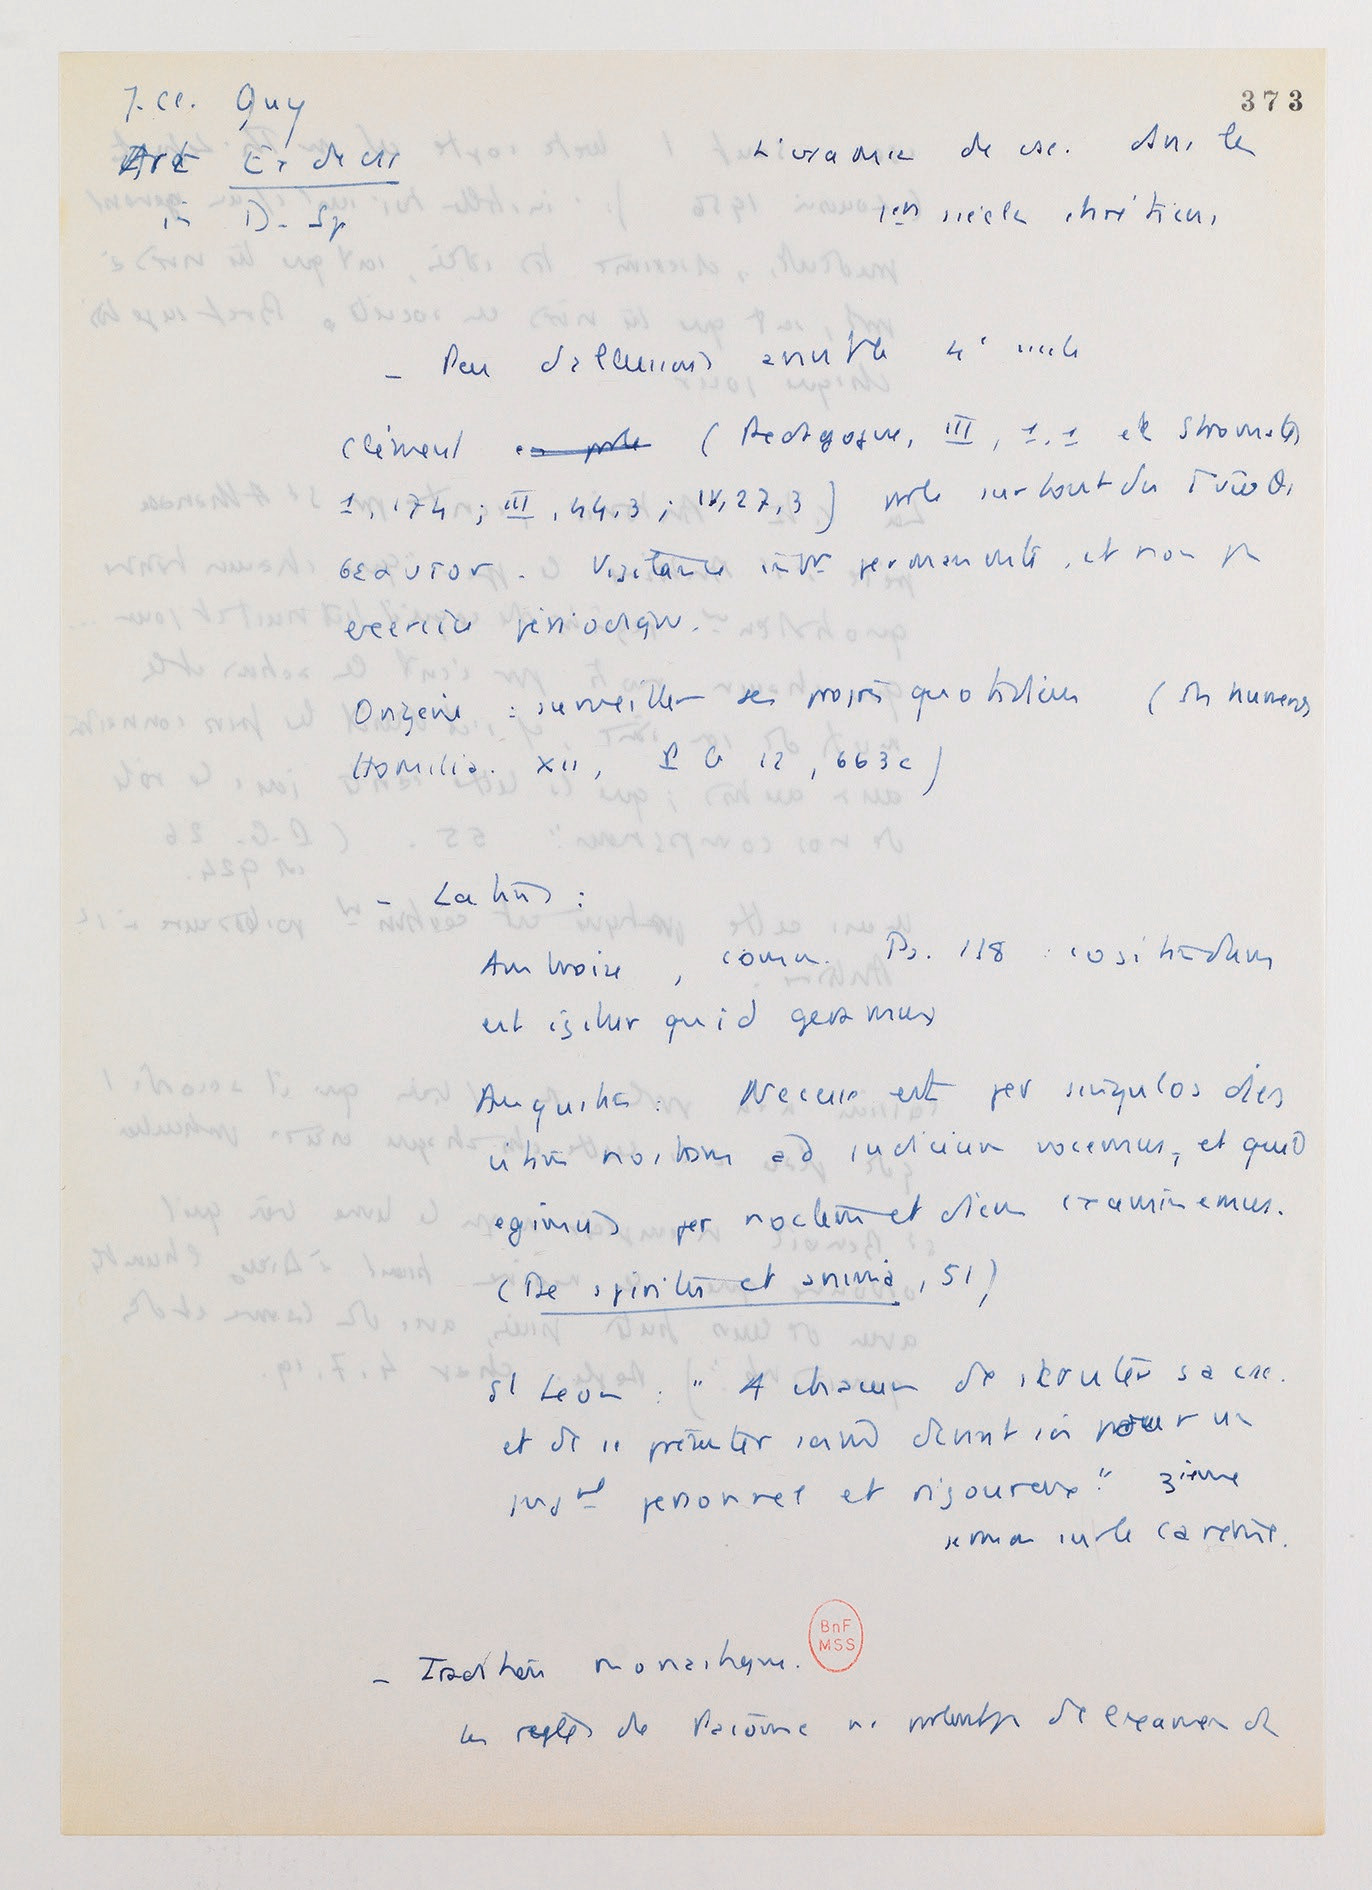 373
J. Cl. Guy
Art Ex de csc
in D. Sp
L'examen de csc. dans les
1ers siècles chrétiens
- Peu d'allusions avant le 4e siècle
Clément (Pédagogue, III, 1.1 et Stromates
1, 174 ; III, 44.3 ; IV, 27,3) parle surtout du Γνῶθι
σεαυτον. Vigilance permanente, et non pas
exercice périodique.
Origène : surveiller ses progrès quotidiens (In Numeros
Homilia. XII, PG 12, 663c)
- Latins :
Ambroise, comm. Ps. 118 : cogitandum
est igitur quid geramus
Augustin : Necesse est per singulos dies
vitam nostram ad iudicium vocemus, et quid
egimus per noctem et diem examinemus.
(De spiritu et anima, 51)
St Leon : "A chacun de scruter sa csc.
et de se présenter devant soi pour un
jugt personnel et rigoureux" 3ième
sermon sur le Carême.
BnF
MSS
- Tradition monastique.
Les règles de Pacôme ne parlent pas de l'examen de